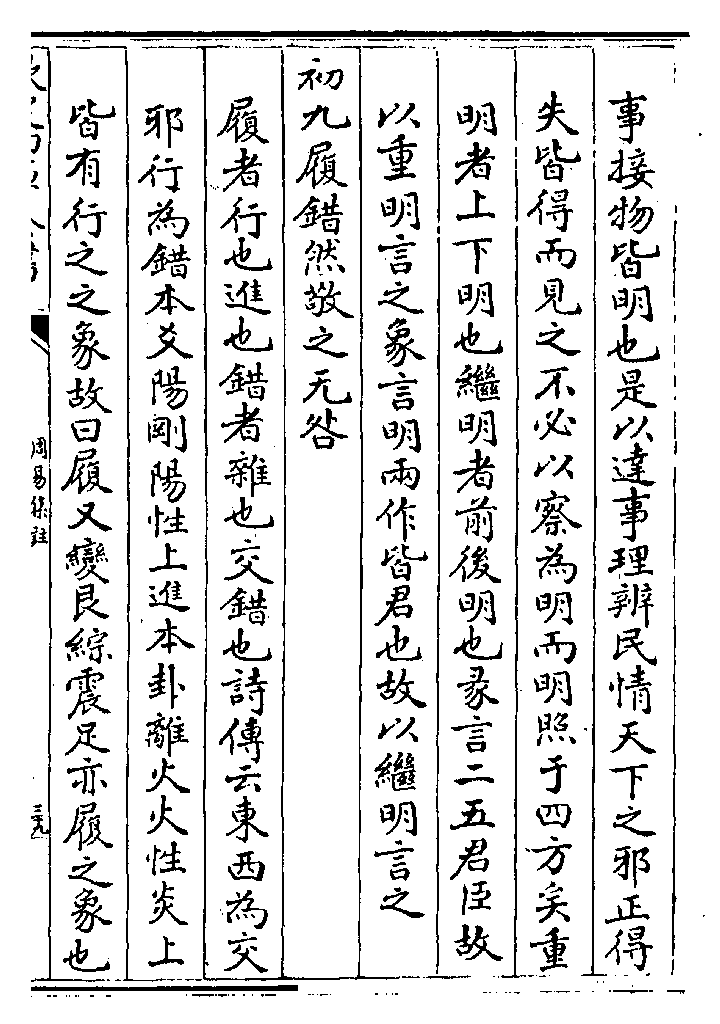 事接物皆明也是以達事理辨民情天下之邪正得
失皆得而見之不必以察為明而明照于四方矣重
明者上下明也繼明者前後明也彖言二五君臣故
以重明言之象言明兩作皆君也故以繼明言之
初九履錯然敬之无咎
履者行也進也錯者雜也交錯也詩傳云東西為交
邪行為錯本爻陽剛陽性上進本卦離火火性炎上
皆有行之之象故曰履又變艮綜震足亦履之象也
周易集註